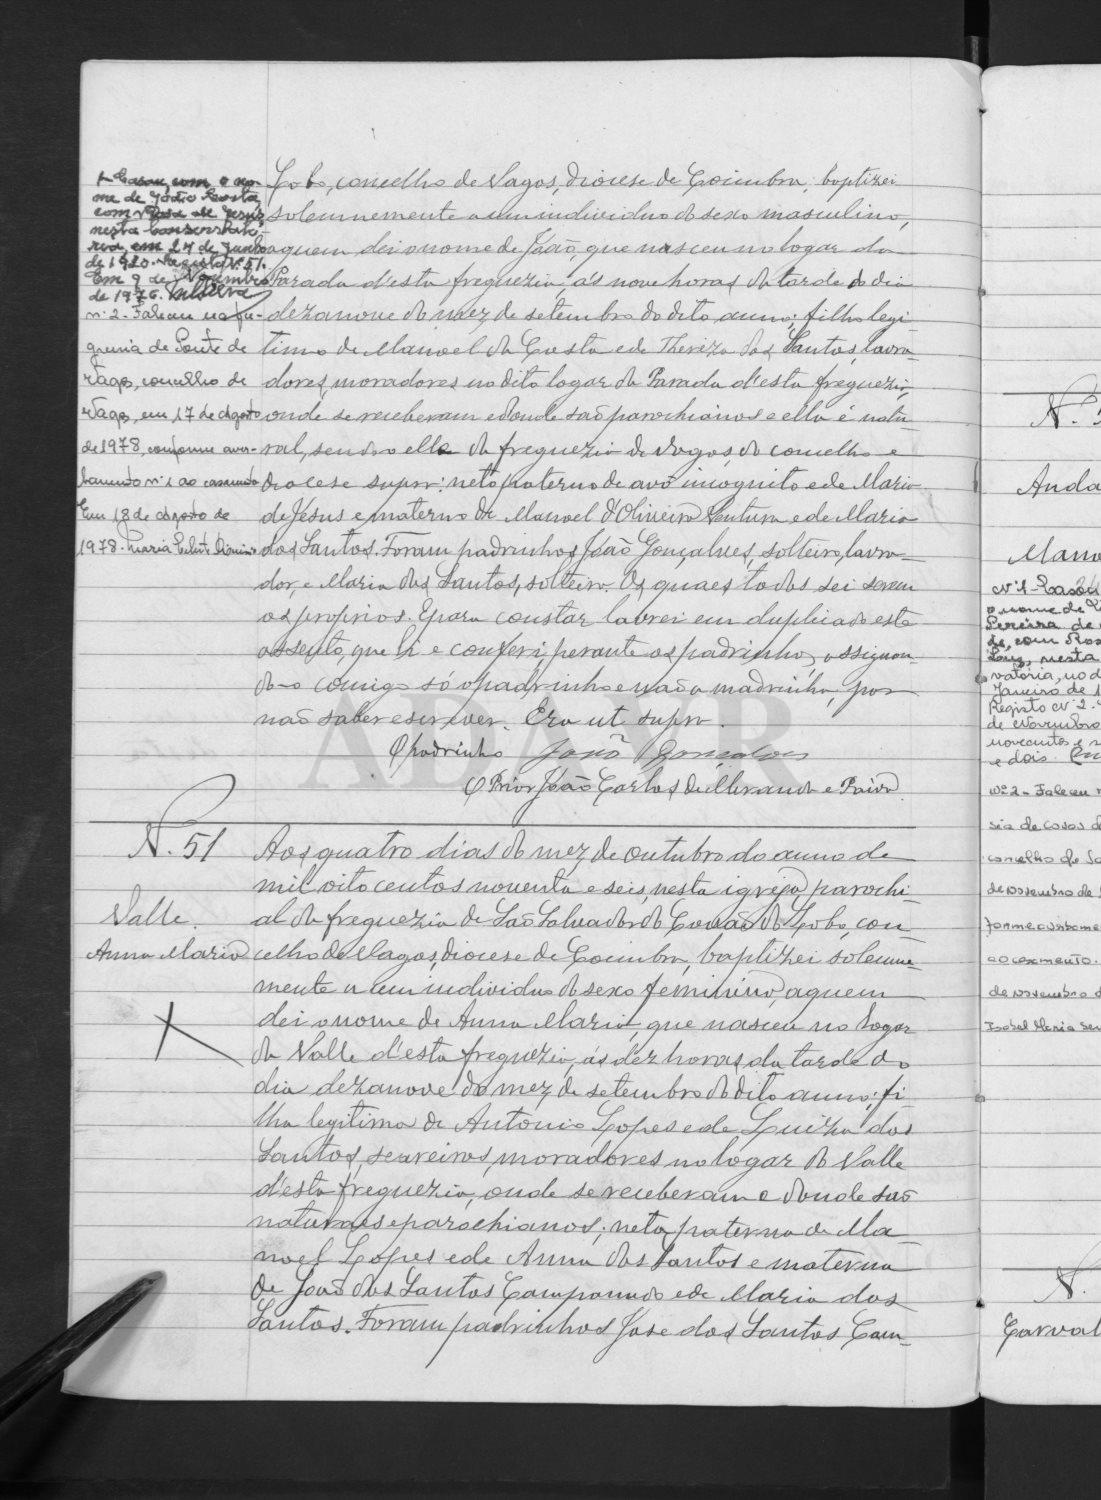 1 Casou, com o no-
me de João Costa,
com Rosa de Jesús
nesta Conservató-
ria, em 27 de Junho
de 1920. Registo N.º 51.
Em 9 de Novembro
de 1976.
n.º 2 - Faleceu na fre-
guesia de Ponte de
Vagos, concelho de
Vagos, em 17 de Agosto
de 1978, conforme aver-
bamento n.º 1 ao casamento
Em 18 de Agosto de
1978. Maria
Lobo, concelho de Vagos, diocese de Coimbra, baptizei
solemnemente a um individuo do sexo masculino,
a quem dei o nome de João, que nasceu no logar da
Parada d'esta freguezia, ás nove horas da tarde do dia
dezanove do mez de setembro do dito anno, filho legi-
timo de Manoel da Costa e de Thereza dos Santos, lavra-
dores, moradores no dito logar da Parada d'esta freguezia,
onde se receberam e donde são parochianos e ella é natu-
ral, sendo elle da freguezia de Vagos, do concelho e
diocese supra: neto paterno de avô incognito e de Maria
de Jesus e materno de Manoel d'Oliveira Ventura e de Maria
dos Santos. Foram padrinhos João Gonçalves, solteiro, lavra-
dor, e Maria dos Santos, solteira. Os quaes todos sei serem
os proprios. E para constar lavrei em duplicado este
assento, que li e conferi, perante os padrinhos, assignan-
do-o comigo só o padrinho e não a madrinha, por
não saber escrever. Era ut supra.
O padrinho João Gonçalves
O Prior João Carlos de Miranda e Paiva
N. 51
Valle
Anna Maria
Aos quatro dias do mez de outubro do anno de
mil oito centos noventa e seis, nesta igreja parochi-
al da freguezia de São Salvador do Covão do Lobo, con-
celho de Vagos, diocese de Coimbra, baptizei solemne-
mente a um individuo do sexo feminino, a quem
dei o nome de Anna Maria, que nasceu no logar
do Valle d'esta freguezia, ás dez horas da tarde do
dia dezanove do mez de setembro do dito anno; fi-
lha legitima de Antonio Lopes e de Luiza dos
Santos, seareiros, moradores no logar do Valle
d'esta freguezia, onde se receberam e donde são
naturaes e parochianos; neta paterna de Ma-
noel Lopes e de Anna dos Santos e materna
de João dos Santos Campanudo e de Maria dos
Santos. Foram padrinhos Jose dos Santos Cam-
N. 5
Anda
Mano
Nº 1 - Casou
o nome de
Pereira de
de, com Ros
Luz, nesta
vatória, no d
Janeiro de 1
Registo Nº 2.
de Novembro
novecentos e
e dois.
Nº 2 - Faleceu
sia de
concelho de
de novembro de
forme
ao casamento.
de novembro d
Isabel Maria
N.
Carval
ADAVR